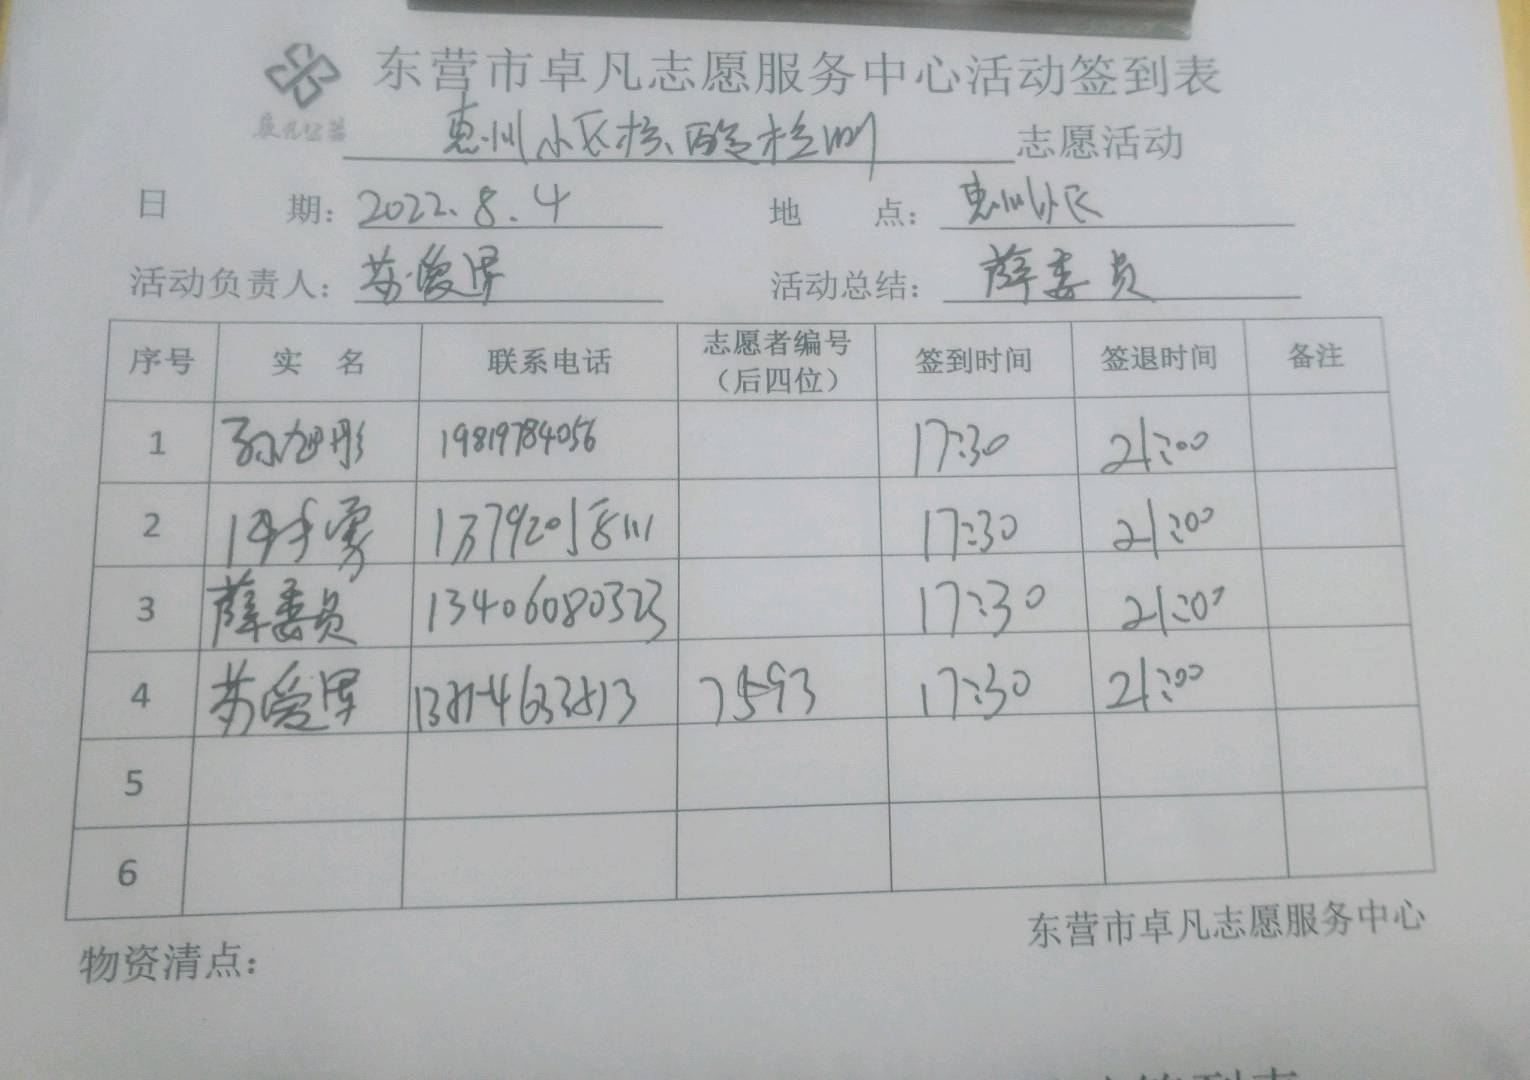 东营市卓凡志愿服务中心活动签到表
卓凡公益
惠州小区核酸检测 志愿活动
日 期：2022.8.4 地 点：惠州小区
活动负责人：苏爱军 活动总结：薛委员
序号 实 名 联系电话 志愿者编号（后四位） 签到时间 签退时间 备注
1 孙旭彤 19819784056 17:30 21:00
2 勇 17:30 21:00
3 薛委员 13406080323 17:30 21:00
4 苏爱军 7593 17:30 21:00
5
6
东营市卓凡志愿服务中心
物资清点：